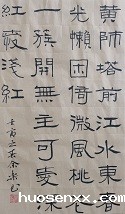 黄師塔前江水東春
光懶困倚微風桃花
一簇開無主可愛深
紅愛淺紅
www.huosenxx.com